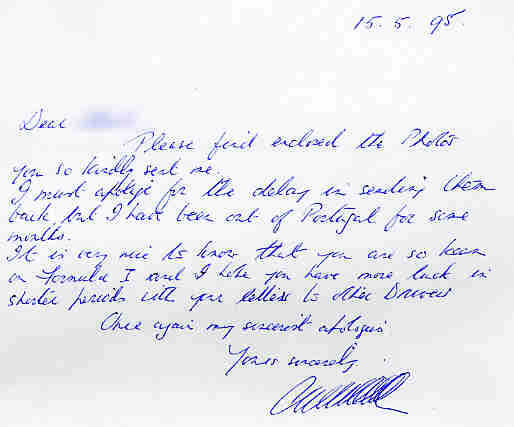 15.5.95.
Dear
Please find enclosed the Photos
you so kindly sent me.
I must apologise for the delay in sending them
back, but I have been out of Portugal for some
months.
It is very nice to know that you are so keen
on Formula I and I hope you have more luck in
shorter periods with your letters to other Drivers
Once again my sincerest apologies
Yours sincerely,